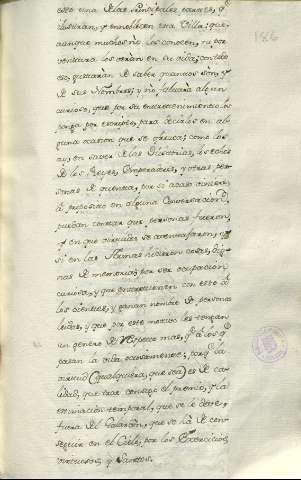 186
esto una de las principales causas, q.e
ilustran, y ennoblecen esta Villa: que
aunque muchos no los conocen, ni por
ventura los verán en su vida; con todo
eso, gustarán de saber quantos son, y
de sus Nombres, y no faltará algun
curioso, que por su entretenimiento los
ponga por escripto, para decirlos en al
guna ocasion que se ofrezca; como los
ay, en saver de las Historias, los echos
de los Reyes, Emperadores, y otras per
sonas de quenta, por si acaso viniere
à proposito en alguna Conversacion,
puedan contar que personas fueron,
y en que virtudes se aventajaron, q.e
si en las Armas hicieron cosas dig
nas de memoria, por ser ocupacion
curiosa, y que entretienen con esto á
los oientes, y ganan nombre de personas
leidas, y que por este motivo les tengan
un genero de respeto mas, q.e á los q.e
pasan la vida ociosamente; porq.e la
virtud (qualquiera que sea) es de ca
lidad, que trae consigo el premio, y la
estimacion temporal, que se le deve,
fuera del Galardon, que se há de con
seguir en el Cielo, por los Exercicios
virtuosos, y Santos.